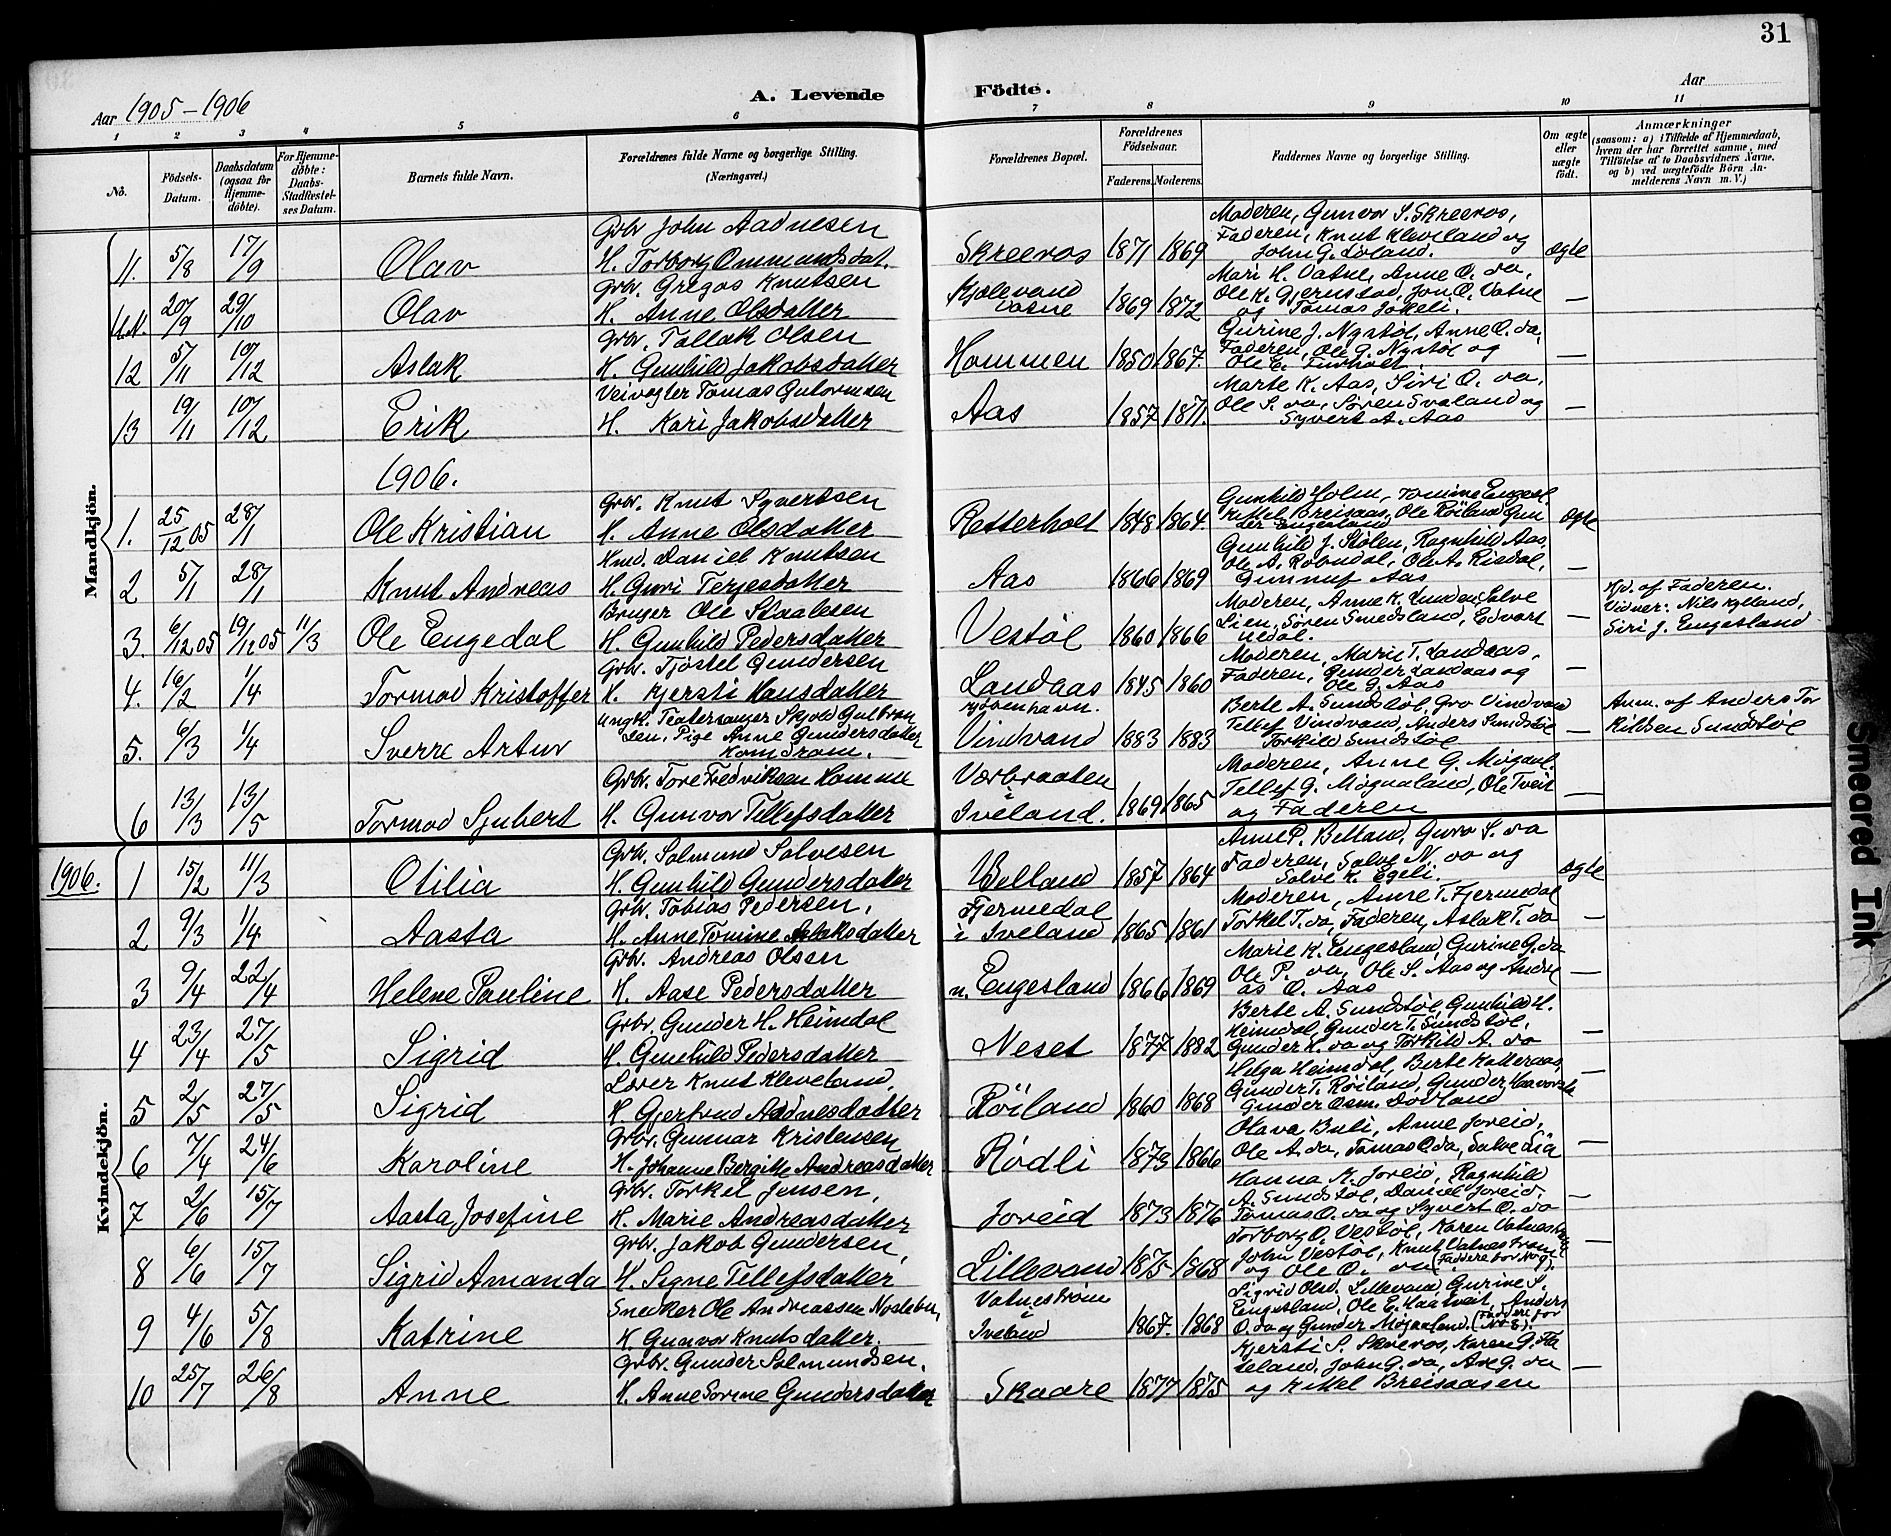 31
Aar 1905-1906
A. Levende Födte.
Aar
1 2 3 4 5 6 7 8 9 10 11
No.
Födsels-Datum.
Daabsdatum (ogsaa for Hjemmedöbte).
For Hjemmedöbte: Daabs-Stadfæstelses Datum.
Barnets fulde Navn.
Forældrenes fulde Navne og borgerlige Stilling. (Næringsvei.)
Forældrenes Bopæl.
Forældrenes Födselsaar.
Faderens. Moderens.
Faddernes Navne og borgerlige Stilling.
Om ægte eller uægte födt.
Anmærkninger
(saasom: a) i Tilfælde af Hjemmedaab, hvem der har forrettet samme, med Tilföielse af to Daabsvidners Navne, og b) ved uægtefödte Börn Anmelderens Navn m. V.)
Mandkjön.
11. 5/8 17/9 Olav Grbr. John Aadnesen H. Torborg Ommundsdat. Skreeros 1871 1869 Moderen, Gunvor S. Skreeros, Faderen, Knut Kleveland og John G. Loland. ægte
20/9 29/10 Olav Grbr. Gregas Knutsen H. Anne Olsdatter Kjølevand 1869 1872 Mari H. Vatne, Anne O. do, Ole K. Gjerustad, Jon O. Vatne og Tomas Jokeli. —
12 5/11 10/12 Aslak Grbr. Tallak Olsen H. Gunhild Jakobsdatter Hommen 1850 1867. Gurine J. Nystøl, Anne O. do, Faderen, Ole G. Nystøl og Ole E. Furholt. —
13 19/11 10/12 Erik Veivogter Tomas Gutormsen H. Kari Jakobsdatter Aas 1857 1871. Marte K. Aas, Siri O. do, Ole S. do, Søren Svaland og Syvert A. Aas —
1906.
1. 25/12 05 28/1 Ole Kristian Grbr. Knut Syvertsen H. Anne Olsdatter Retterholt 1848 1864. Gunhild Holm, Tomine Engesl. Kittel Breisaas, Ole Røiland Gunder Engesland ægte
2 5/1 28/1 Knut Andreas Hmd. Daniel Knutsen H. Guri Terjesdatter Aas 1866 1869 Gunhild J. Stølen, Ragnhild Aas, Ole A. Robndal, Ole A. Risdal, Gunnuf Aas —
3. 6/12 05 19/12 05 11/3 Ole Engedal Bruger Ole Staalesen H. Gunhild Pedersdatter Vestøl 1860 1866 Moderen, Anne K. Lunden, Salve Lien, Søren Smedsland, Edvart Uedal. — Hjd. af Faderen. Vidner: Nils Kylland, Siri J. Engesland
4. 16/2 1/4 Tormod Kristoffer Grbr. Tjøstel Gundersen H. Kjersti Hansdatter Landaas 1845 1860 Moderen, Marie T. Landaas, Faderen, Gunder Landaas og Ole G. Aas —
5. 6/3 1/4 Sverre Artur Ungk. Teatersanger Skjold Gulbransen, Pige Anne Gundersdatter Kjøbenhavn. Vindvand 1883 1883 Berte A. Sundstøl, Gro Vindvand Tellef Vindvand, Anders Sundstøl Torkild Sundstøl — Anm. af Anders Torkildsen Sundstøl
6 13/3 13/5 Tormod Sjubert Grbr. Tore Fredriksen Homme H. Gunvor Tellefsdatter Værbraaten i Iveland. 1869. 1865 Moderen, Anne G. Møgdal. Tellef G. Møgaaland, Ole Tveit og Faderen —
Kvindekjön.
1906. 1 15/2 11/3 Otilia Grbr. Salmund Salvesen H. Gunhild Gundersdatter Belland 1857 1864 Anne P. Belland, Guro S. do Faderen, Salve N. do og Salve K. Egeli. ægte
2 9/3 1/4 Aasta Grbr. Tobias Pedersen, H. Anne Tomine Aslaksdatter Fjermedal i Iveland 1865 1861 Moderen, Anne T. Fjermedal Torkel T. do, Faderen, Aslak T. do —
3 9/4 22/4 Helene Pauline Grbr. Andreas Olsen H. Aase Pedersdatter n. Engesland 1866 1869 Marie K. Engesland, Gurine G. do Ole P. do, Ole S. Aas og Andreas O. Aas —
4 23/4 27/5 Sigrid Grbr. Gunder H. Heimdal H. Gunhild Pedersdatter Neset 1877 1882 Berte A. Sundstøl, Gunhild H. Heimdal, Gunder T. Sundstøl, Gunder H. do og Torkild A. do —
5 2/5 27/5 Sigrid Lærer Knut Kleveland, H. Gjertrud Aadnesdatter Røiland 1860 1868 Helga Heimdal, Berte Katteraas, Gunder T. Røiland, Gunder Haavorsta Gunder Osm. Dovland —
6 7/4 24/6 Karoline Grbr. Gunnar Kristensen H. Johanne Bergitte Andreasdatter Rødli 1873 1866 Olava Buli, Anne Joreid, Ole A. do, Tomas O. do, Salve Lia —
7 2/6 15/7 Aasta Josefine Grbr. Torkel Jensen, H. Marie Andreasdatter Joreid 1873 1876 Hanna K. Joreid, Ragnhild A. Sundstøl, Daniel Joreid, Tomas O. do og Syvert O. do —
8 6/6 15/7 Sigrid Amanda Grbr. Jakob Gundersen, H. Signe Tellefsdatter Lillevand 1875 1868 Torborg O. Vestøl, Karen Vatnestrøm John Vestøl, Knut Vatnestrøm og Ole O. do (Faddere for No 9). —
9 4/6 5/8 Katrine Snedker Ole Andreassen Noslebu, H. Gunvor Knutsdatter. Vatnestrøm i Iveland 1867. 1868 Sigrid Olsd. Lillevand, Gurine S. Engesland, Ole E. Haatveit, Anders O. do og Gunder Møgaaland. (Faddere for No 8).
10 25/7 26/8 Anne Grbr. Gunder Salmundsen, H. Anne Sorine Gundersdatter Skaare 1877 1875 Kjersti S. Skreros, Karen G. Haseland, John G. do, Ane G. do og Kittel Breisaasen —
Smeared Ink